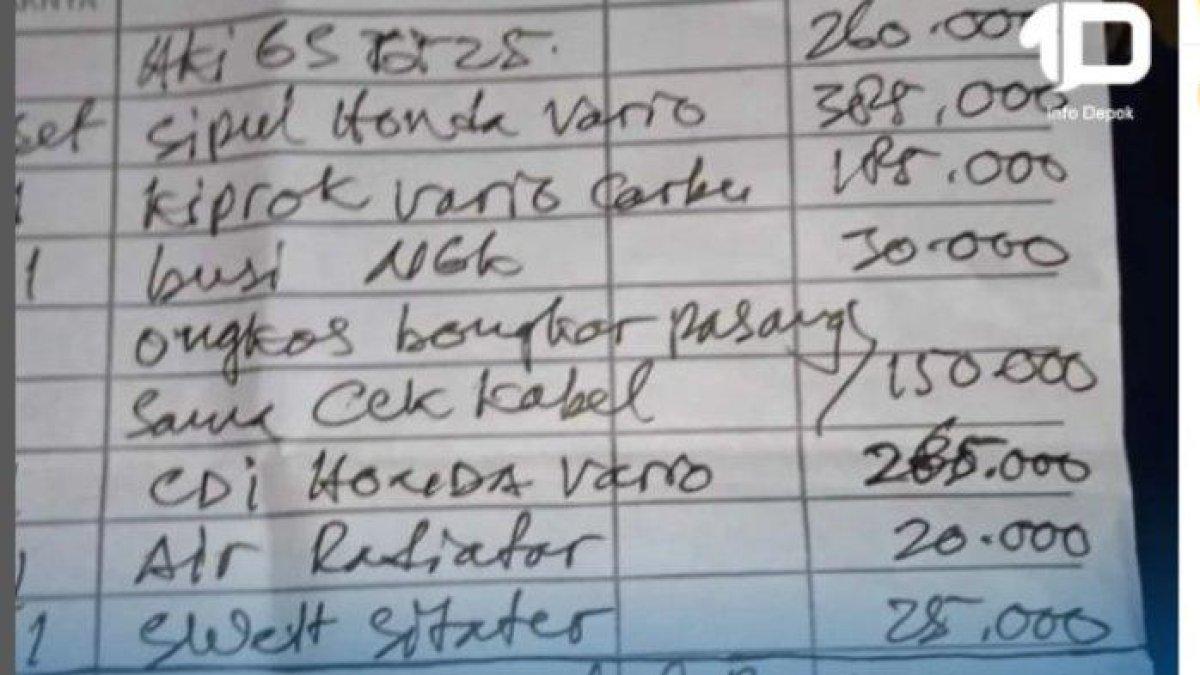 Aki GS 25. 260.000
set Sipul Honda Vario 385,000
1 kiprok vario Carbu 185.000
1 busi NGK 30.000
ongkos bongkar pasang
Sama Cek kabel 150.000
CDI HONDA Vario 265.000
Air Radiator 20.000
1 SWeit Sitater 25.000
1D
Info Depok